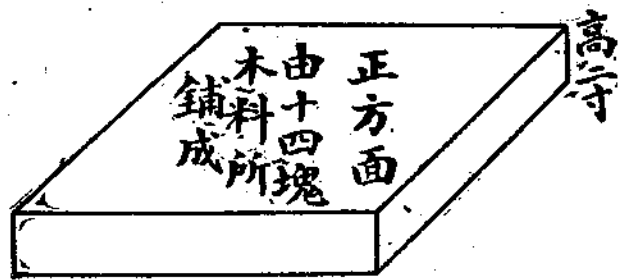 高二寸
正方面
由十四塊
木料所
鋪成